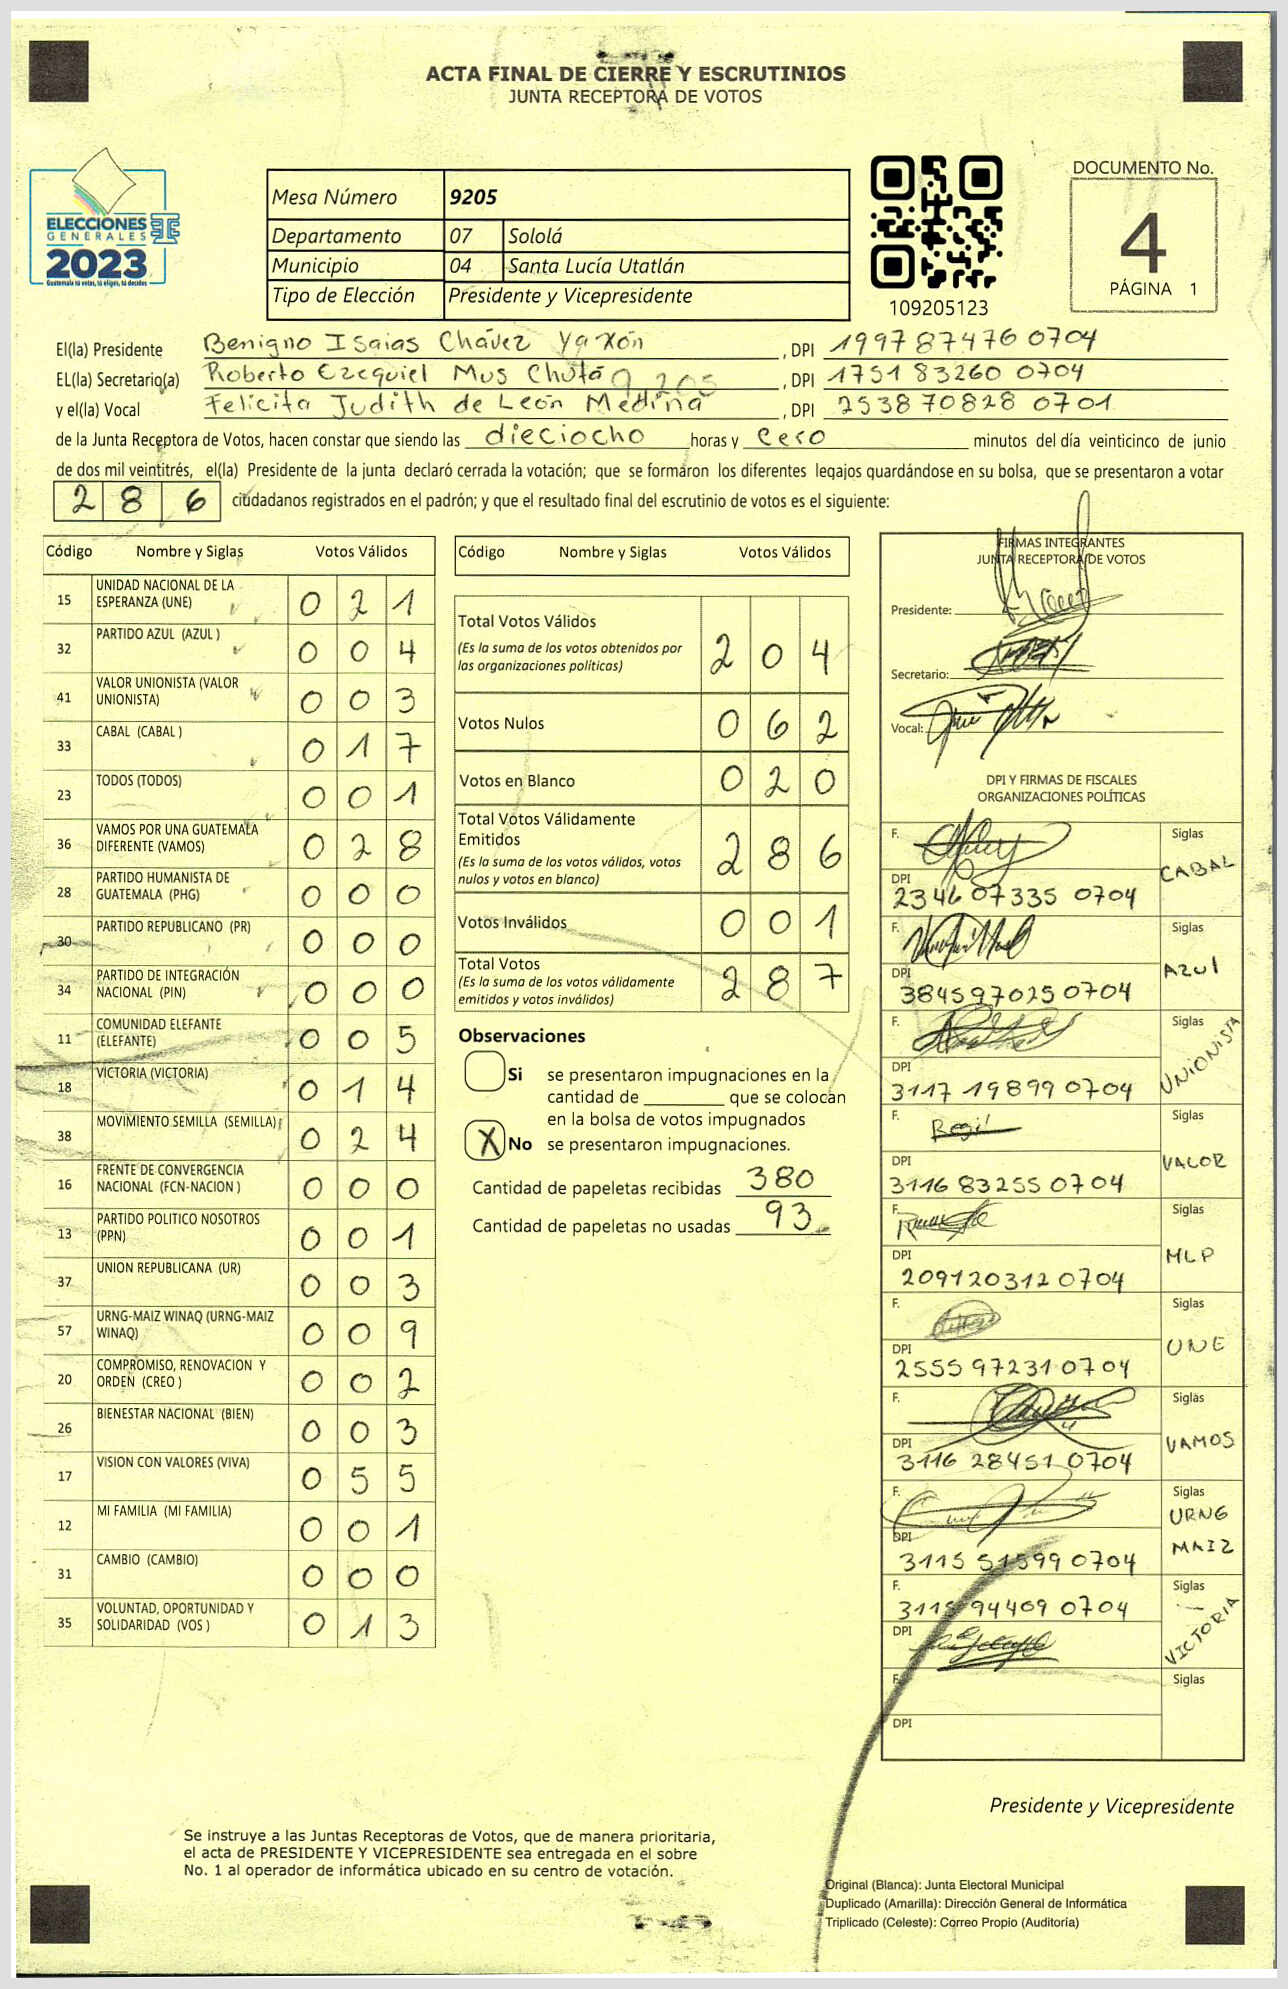 ACTA FINAL DE CIERRE Y ESCRUTINIOS
JUNTA RECEPTORA DE VOTOS
ELECCIONES
GENERALES
2023
Guatemala tú votas, tú eliges, tú decides
Mesa Número 9205
Departamento 07 Sololá
Municipio 04 Santa Lucía Utatlán
Tipo de Elección Presidente y Vicepresidente
109205123
DOCUMENTO No.
4
PÁGINA 1
El(la) Presidente Benigno Isaias Chávez Yaxón , DPI 1997 87476 0704
EL(la) Secretario(a) Roberto Ezequiel Mus Chutá 9,205 , DPI 1751 83260 0704
y el(la) Vocal Felicita Judith de León Medina , DPI 2538 70828 0701
de la Junta Receptora de Votos, hacen constar que siendo las dieciocho horas y cero minutos del día veinticinco de junio
de dos mil veintitrés, el(la) Presidente de la junta declaró cerrada la votación; que se formaron los diferentes legajos guardándose en su bolsa, que se presentaron a votar
2 8 6 ciudadanos registrados en el padrón; y que el resultado final del escrutinio de votos es el siguiente:
Código Nombre y Siglas Votos Válidos
15 UNIDAD NACIONAL DE LA ESPERANZA (UNE) 0 2 1
32 PARTIDO AZUL (AZUL ) 0 0 4
41 VALOR UNIONISTA (VALOR UNIONISTA) 0 0 3
33 CABAL (CABAL ) 0 1 7
23 TODOS (TODOS) 0 0 1
36 VAMOS POR UNA GUATEMALA DIFERENTE (VAMOS) 0 2 8
28 PARTIDO HUMANISTA DE GUATEMALA (PHG) 0 0 0
30 PARTIDO REPUBLICANO (PR) 0 0 0
34 PARTIDO DE INTEGRACIÓN NACIONAL (PIN) 0 0 0
11 COMUNIDAD ELEFANTE (ELEFANTE) 0 0 5
18 VICTORIA (VICTORIA) 0 1 4
38 MOVIMIENTO SEMILLA (SEMILLA) 0 2 4
16 FRENTE DE CONVERGENCIA NACIONAL (FCN-NACION ) 0 0 0
13 PARTIDO POLITICO NOSOTROS (PPN) 0 0 1
37 UNION REPUBLICANA (UR) 0 0 3
57 URNG-MAIZ WINAQ (URNG-MAIZ WINAQ) 0 0 9
20 COMPROMISO, RENOVACION Y ORDEN (CREO ) 0 0 2
26 BIENESTAR NACIONAL (BIEN) 0 0 3
17 VISION CON VALORES (VIVA) 0 5 5
12 MI FAMILIA (MI FAMILIA) 0 0 1
31 CAMBIO (CAMBIO) 0 0 0
35 VOLUNTAD, OPORTUNIDAD Y SOLIDARIDAD (VOS ) 0 1 3
Código Nombre y Siglas Votos Válidos
Total Votos Válidos
(Es la suma de los votos obtenidos por
las organizaciones políticas) 2 0 4
Votos Nulos 0 6 2
Votos en Blanco 0 2 0
Total Votos Válidamente
Emitidos
(Es la suma de los votos válidos, votos
nulos y votos en blanco) 2 8 6
Votos Inválidos 0 0 1
Total Votos
(Es la suma de los votos válidamente
emitidos y votos inválidos) 2 8 7
Observaciones
Si se presentaron impugnaciones en la
cantidad de ________ que se colocan
en la bolsa de votos impugnados
X No se presentaron impugnaciones.
Cantidad de papeletas recibidas 380
Cantidad de papeletas no usadas 93
FIRMAS INTEGRANTES
JUNTA RECEPTORA DE VOTOS
Presidente:
Secretario:
Vocal:
DPI Y FIRMAS DE FISCALES
ORGANIZACIONES POLÍTICAS
F. Siglas
CABAL
DPI
2346 07335 0704
F. Siglas
AZUL
DPI
3845 97025 0704
F. Siglas
UNIONISTA
DPI
3117 19899 0704
F. Siglas
VALOR
DPI
3116 83255 0704
F. Siglas
MLP
DPI
2091 20312 0704
F. Siglas
UNE
DPI
2555 97231 0704
F. Siglas
VAMOS
DPI
3116 28451 0704
F. Siglas
URNG
MAIZ
DPI
3115 51599 0704
F. Siglas
3115 94409 0704
VICTORIA
DPI
F. Siglas
DPI
Presidente y Vicepresidente
Se instruye a las Juntas Receptoras de Votos, que de manera prioritaria,
el acta de PRESIDENTE Y VICEPRESIDENTE sea entregada en el sobre
No. 1 al operador de informática ubicado en su centro de votación.
Original (Blanca): Junta Electoral Municipal
Duplicado (Amarilla): Dirección General de Informática
Triplicado (Celeste): Correo Propio (Auditoría)